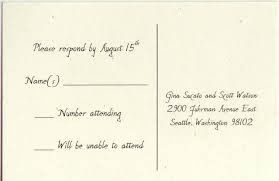 Please respond by August 15th
Name(s)
Number attending
Will be unable to attend
Gina Sucato and Scott Watson
2900 Fuhrman Avenue East
Seattle, Washington 98102